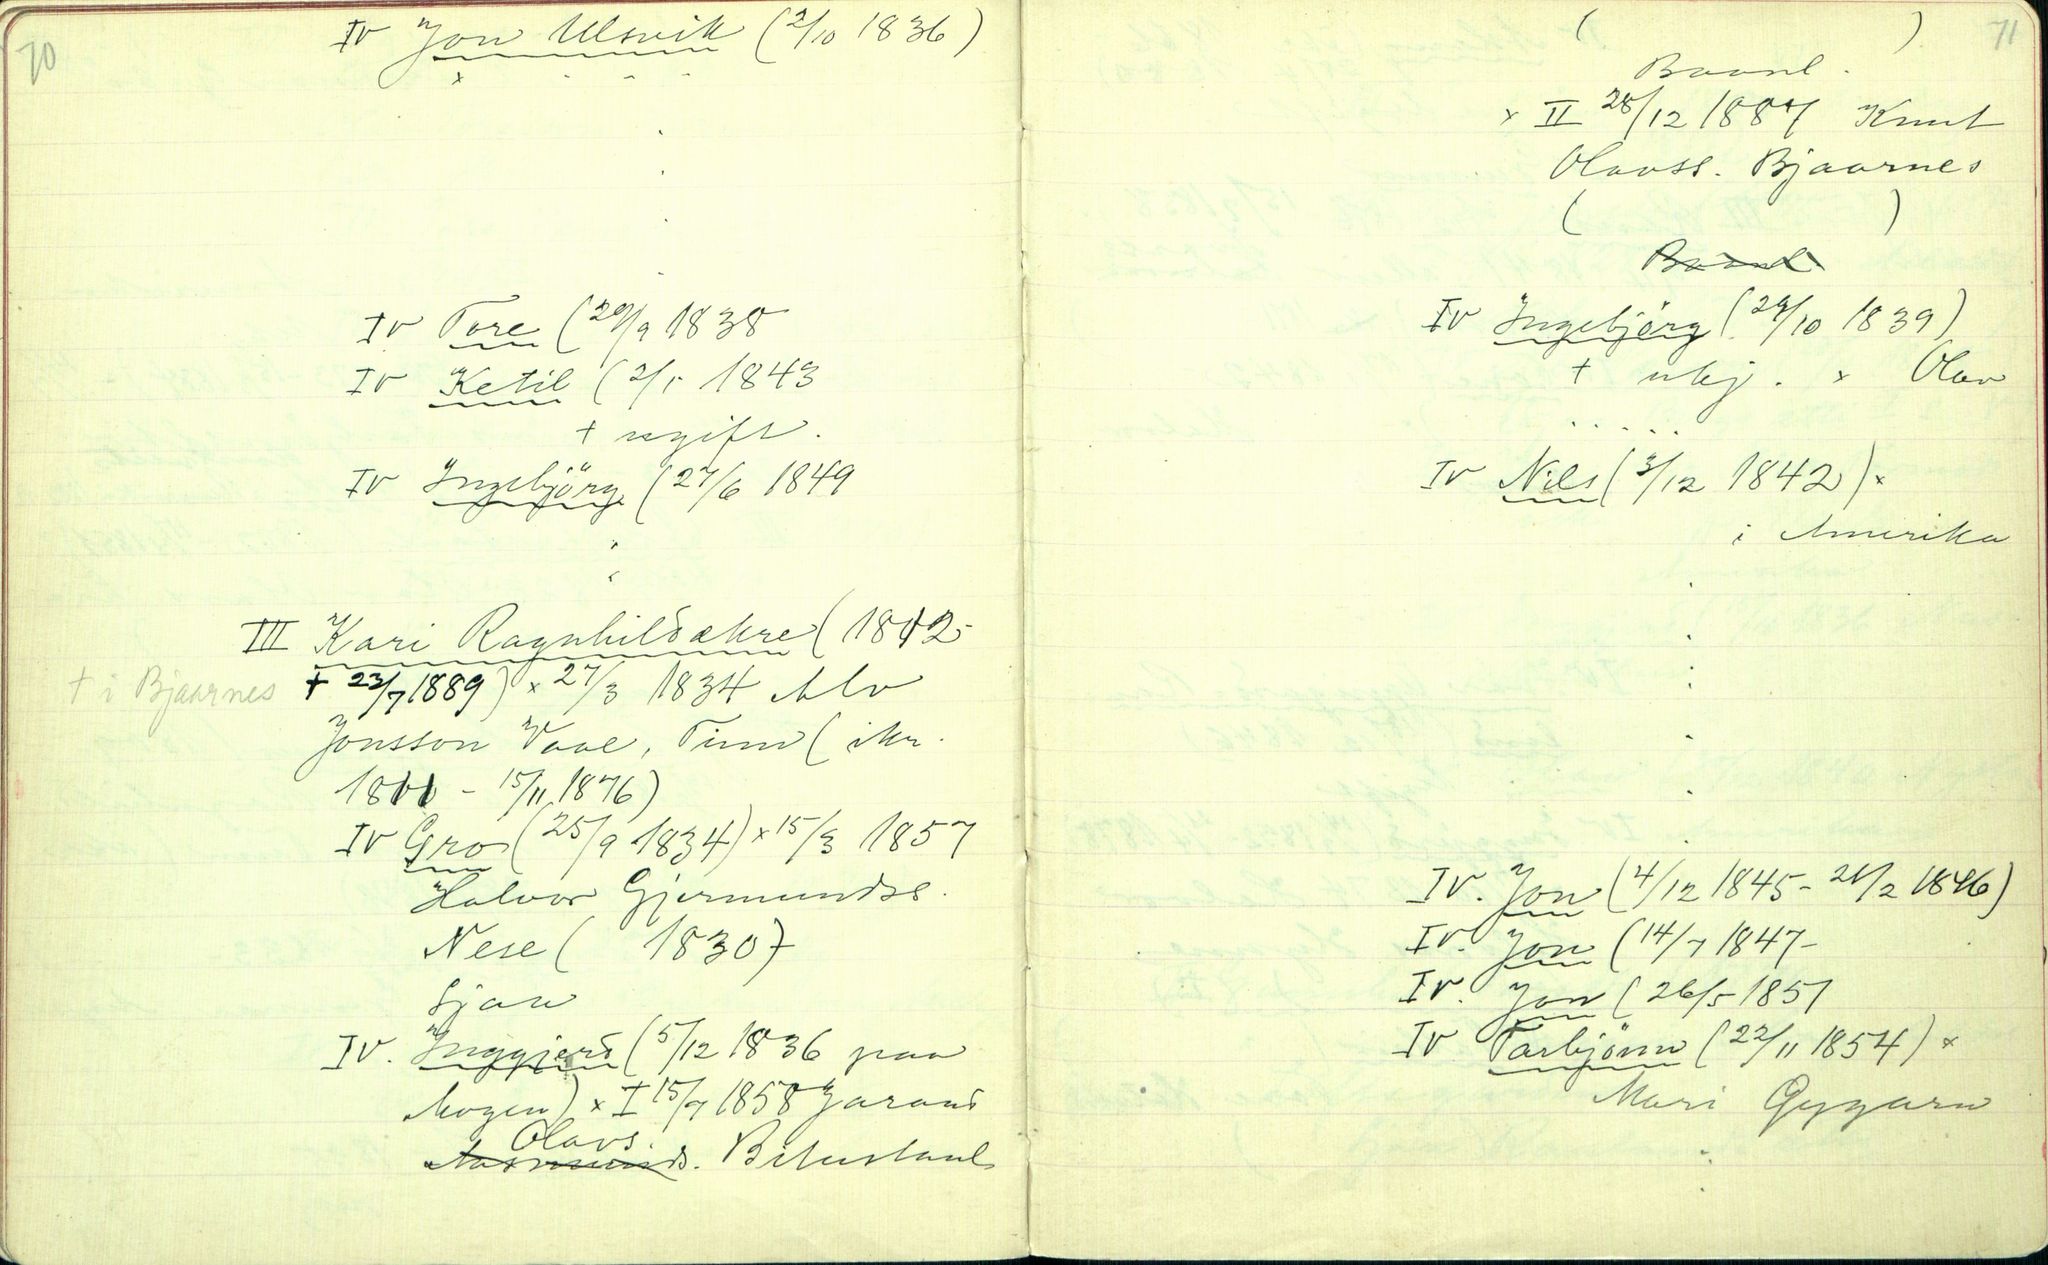 70
IV Jon Ulsvik (2/10 1836)
x - - -
IV Tore (20/9 1838
IV Ketil (2/5 1843
+ ugift.
IV Ingebjörg (27/6 1849
III Kari Ragnhildsakre (1812-
+ i Bjaarnes + 23/7 1889) x 27/3 1834 Alv
Jonsson Vaae, Tinn (ikr.
1811 - 15/11 1876)
IV Gro (25/9 1834) x 15/3 1857
Halvor Gjermundss.
Nese ( 1830)
Sjaa
IV. Inggjerd (5/12 1836 paa
Mogen) x I 15/7 1858 Jarand
Olavs.
Aasmunds. Bitustaul
71
( )
Baanl.
x II 28/12 1887 Knut
Olavss. Bjaarnes
( )
Baanl
IV Ingebjörg (29/10 1839)
+ ukj. x Olav
. . . . .
IV Nils (3/12 1842) x
i Amerika
IV. Jon (4/12 1845 - 21/2 1846)
IV. Jon (14/7 1847-
IV. Jon (26/5 1851
IV Tarbjönn (22/11 1854) x
Mari Gygarn